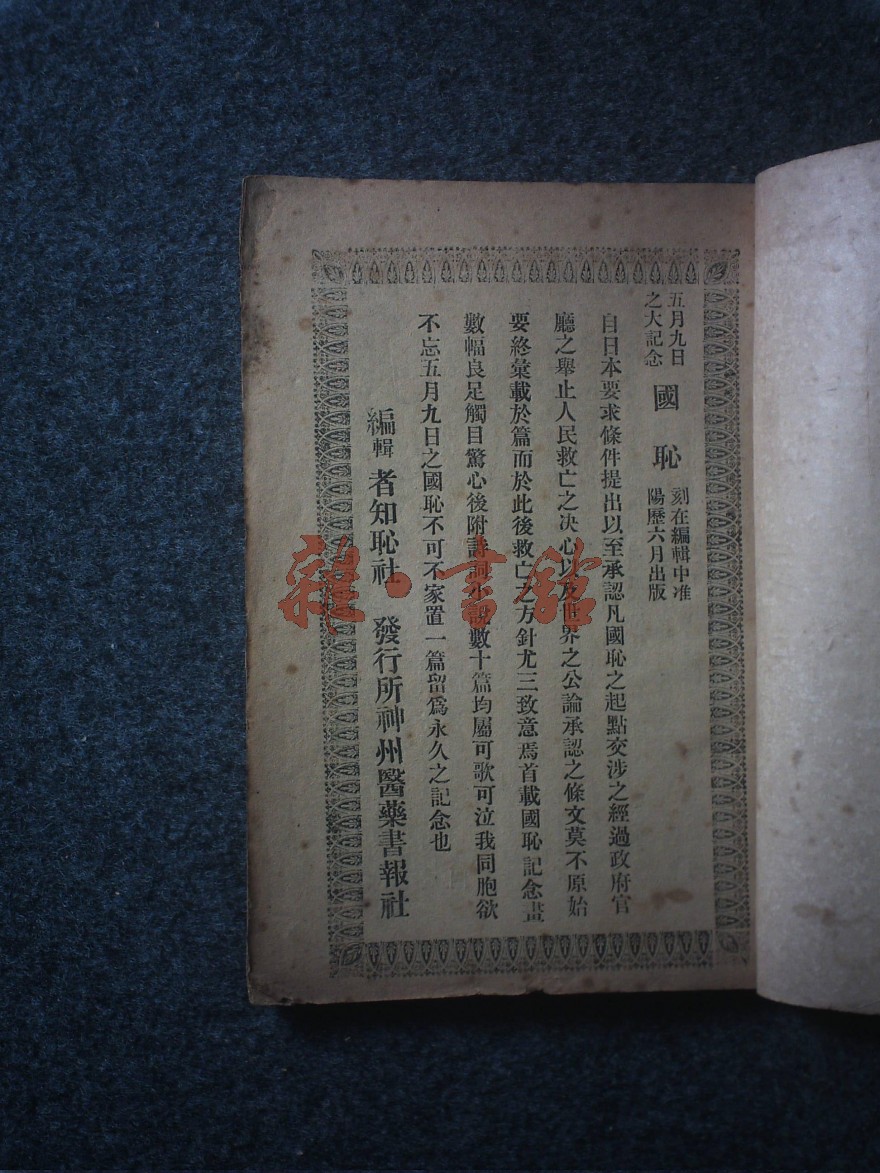 五月九日
之大記念
國恥
刻在編輯中准
陽歷六月出版
自日本要求條件提出以至承認凡國恥之起點交涉之經過政府官
廳之舉止人民救亡之决心以及世界之公論承認之條文莫不原始
要終彙載於篇而於此後救亡之方針尤三致意焉首載國恥記念畫
數幅良足觸目驚心後附詩詞小說數十篇均屬可歌可泣我同胞欲
不忘五月九日之國恥不可不家置一篇留爲永久之記念也
編輯者知恥社 發行所神州醫藥書報社
雜·書館